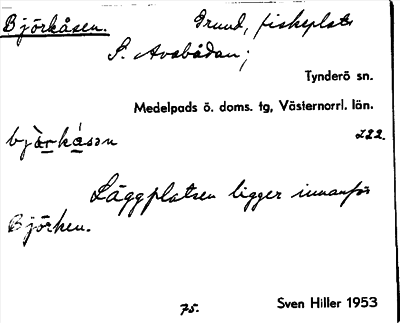 Björkåsen. Grund, fiskeplats
S. Avabådan;
Tynderö sn.
Medelpads ö. doms. tg, Västernorrl. län.
björkåsən 222.
Läggplatsen ligger innanför
Björken.
75. Sven Hiller 1953